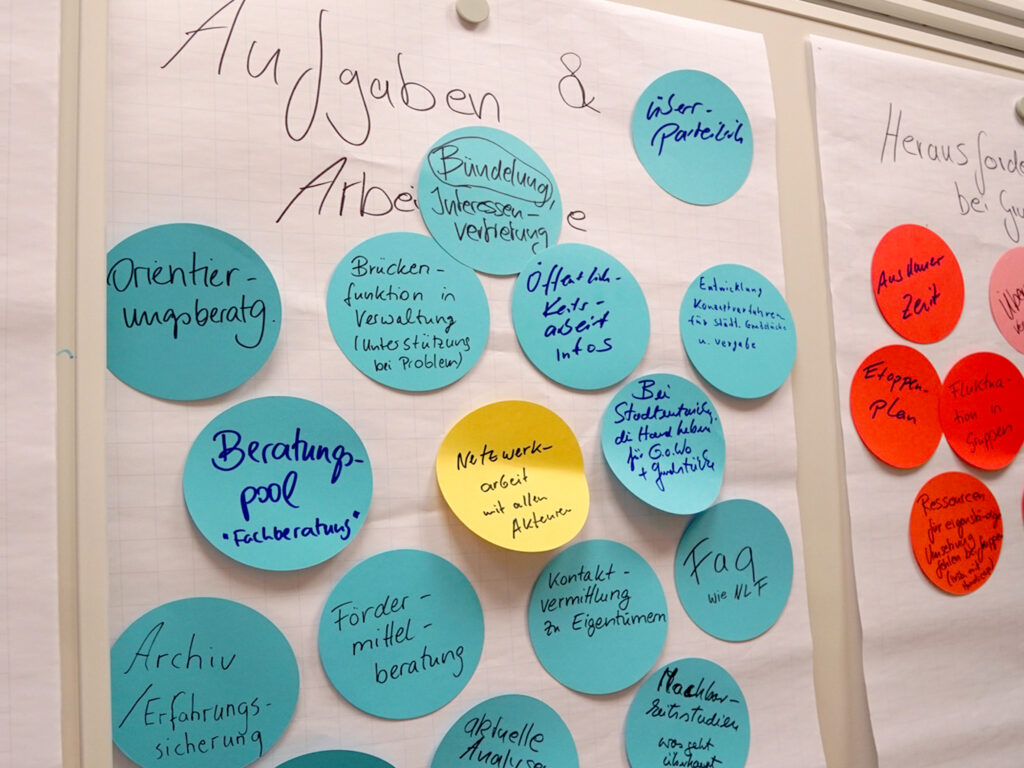 Aufgaben &
Arbei
e
über-
parteilich
Bündelung,
Interessen-
vertretung
Orientier-
ungsberatg.
Brücken-
funktion in
Verwaltung
(Unterstützung
bei Problem)
Öffentlich-
keits-
arbeit
Infos
Entwicklung
Konzeptverfahren
für städtl. Grundstücke
u. Vergabe
Beratungs-
pool
"Fachberatung"
Netzwerk-
arbeit
mit allen
Akteuren
Bei
Stadtentwickl.
die Hand heben
für G.o.Wo
+ Grundstücke
FaQ
wie NLF
Förder-
mittel-
beratung
Kontakt-
vermittlung
zu Eigentümern
Archiv
/Erfahrungs-
sicherung
aktuelle
Analysen
Machbar-
keitsstudien
was geht
überhaupt
Herausforde
bei Gru
Ausdauer
Zeit
Etappen-
Plan
Fluktua-
tion in
Gruppen
Ressourcen
für eigenständige
Umsetzung
fehlen bei Gruppen